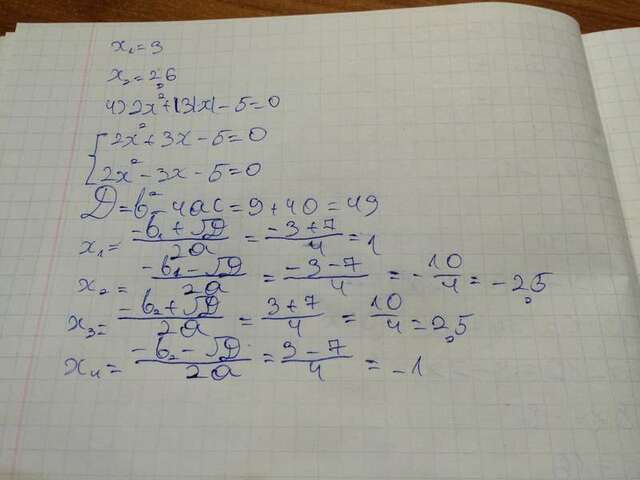 x₁=3
x₂=2,6
4) 2x²+|3x|-5=0
[2x²+3x-5=0
[2x²-3x-5=0
D=b²-4ac=9+40=49
x₁= (-b₁+√D)/2a = (-3+7)/4 = 1
x₂= (-b₁-√D)/2a = (-3-7)/4 = -10/4 = -2,5
x₃= (-b₂+√D)/2a = (3+7)/4 = 10/4 = 2,5
x₄= (-b₂-√D)/2a = (3-7)/4 = -1